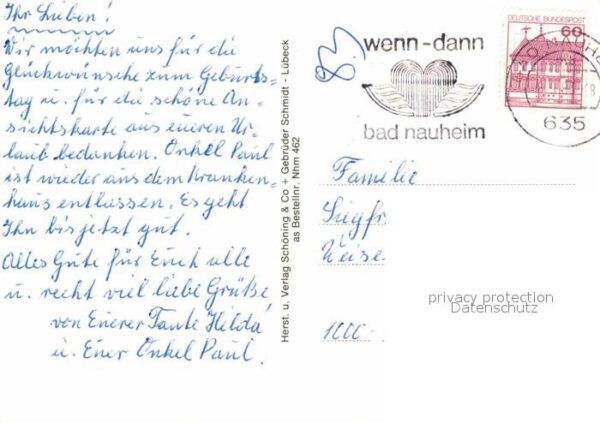 Ihr Lieben!
Wir möchten uns für die
Glückwünsche zum Geburts=
tag u. für die schöne An=
sichtskarte aus eueren Ur=
laub bedanken. Onkel Paul
ist wieder aus dem Kranken=
haus entlassen. Es geht
Ihn bis jetzt gut.
Alles Gute für Euch alle
u. recht viel liebe Grüße
von Euerer Tante Hilda
u. Euer Onkel Paul.
Herst. u. Verlag Schöning & Co + Gebrüder Schmidt - Lübeck
as Bestellnr. Nhm 462
wenn-dann
bad nauheim
DEUTSCHE BUNDESPOST
60
635
Familie
Siegfr
1000-
privacy protection
Datenschutz